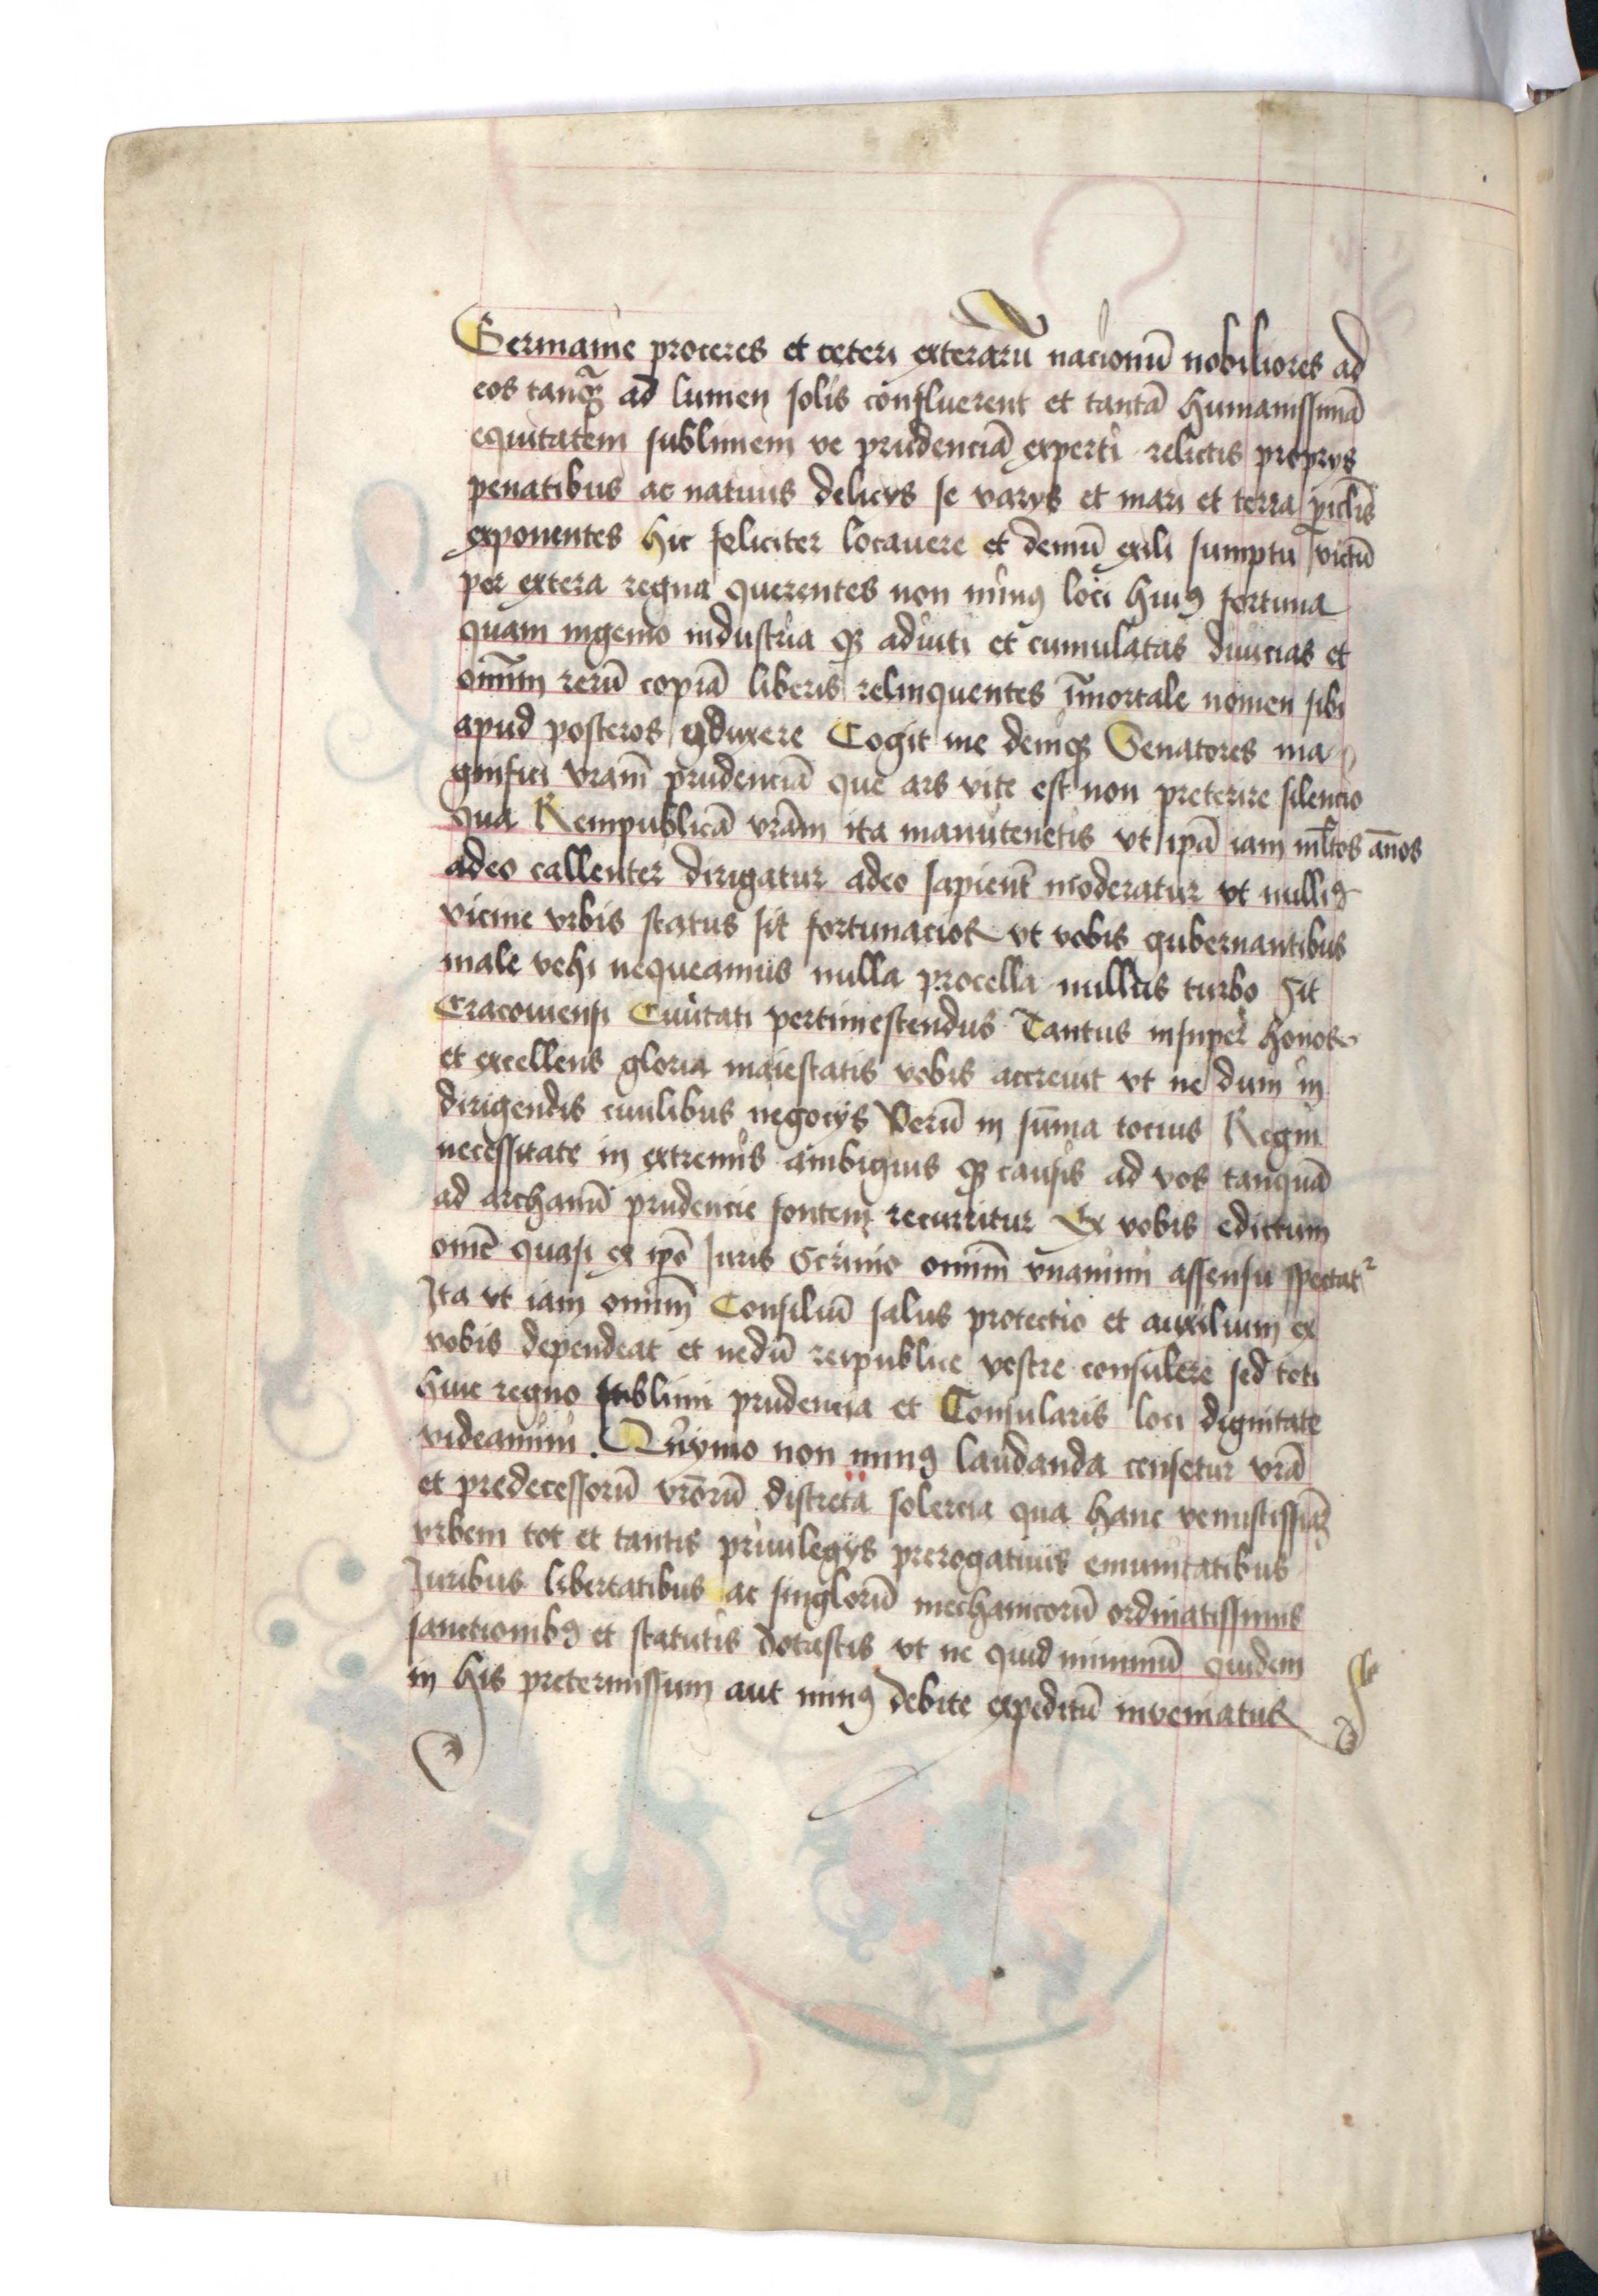 Germanie proceres et ceteri exterarū nacionū nobiliores ad
eos tanq̄ȝ ad lumen solis confluerent et tantā humanissimā
equitatem sublimem ve prudenciā experti relictis proprys
penatibus ac natiuis delicys se varys et mari et terra ꝑiclis̄
exponentes hic feliciter locauere et demū exili sumptu victū
per extera regna querentes non minꝰ loci huiꝰ fortuna
quam ingenio industria qȝ adiuti et cumulatas diuicias et
om̄nim rerū copiā liberis relinquentes īmortale nomen sibi
apud posteros ꝯduxere Cogit me deniqȝ Senatores ma
gnifici vram̄ prudenciā que ars vite est non preterire silencio
Qua Rempublicā vram̄ ita manutenetis vt ip̄ā iam ml̄tos an̄os
adeo callenter dirigatur adeo sapient̄ moderatur vt nulliꝰ
vicine vrbis status sit fortunacior vt vobis gubernantibus
male vehi nequeamus nulla procella nullus turbo sit
Cracouiensi Ciuitati pertimescendus Tantus insuper honor
et excellens gloria maiestatis vobis accreuit vt ne dum in
dirigendis ciuilibus negocys Verū in sūma tocius Regni
necessitate in extremis ambiguis qȝ causis ad vos tanquā
ad archanū prudencie fontem recurritur Ex vobis edictum
om̄e quasi ex ip̄o Iuris Scrinio omniū vnanimi assensu spectat²
Ita vt iam omniū Consiliū salus protectio et auxilium ex
vobis dependeat et nedū reipublice vestre consulere sed toti
huic regno sublimi prudencia et Consularis loci dignitate
videamini . Quymo non minꝰ laudanda censetur vrā
et predecessorū vrōrū discreta solercia qua hanc venustissimāȝ
vrbem tot et tantis priuilegys prerogatiuis emunitatibus
Iuribus libertatibus ac singlorū mechanicorū ordinatissimis
sanctionibꝰ et statutis dotastis vt ne quid minimū quidem
in his pretermissum aut minꝰ debite expeditū inveniatur